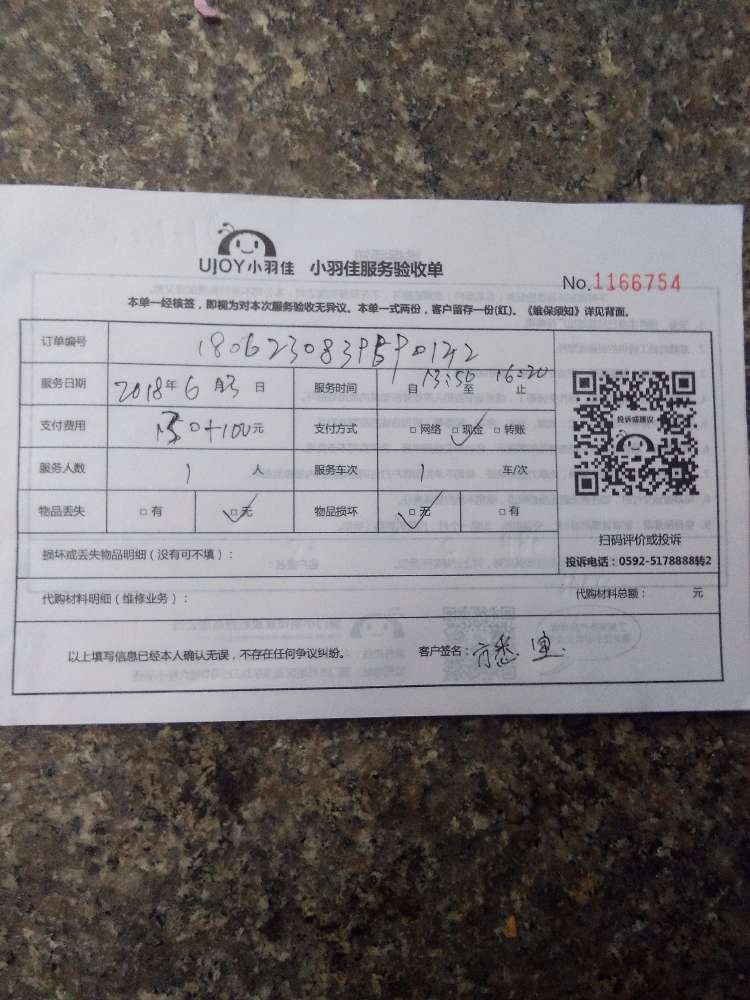 UJOY小羽佳 小羽佳服务验收单
No.1166754
本单一经核签，即视为对本次服务验收无异议。本单一式两份，客户留存一份(红)。《维保须知》详见背面。
订单编号
服务日期 2018年6月23日 服务时间 自13:50至16:20止
支付费用 +100元 支付方式 □网络 □现金 □转账
投诉或建议
服务人数 1 人 服务车次 1 车/次
物品丢失 □有 □无 物品损坏 □无 □有
扫码评价或投诉
损坏或丢失物品明细（没有可不填）：
投诉电话：0592-5178888转2
代购材料明细（维修业务）： 代购材料总额： 元
以上填写信息已经本人确认无误，不存在任何争议纠纷。 客户签名：